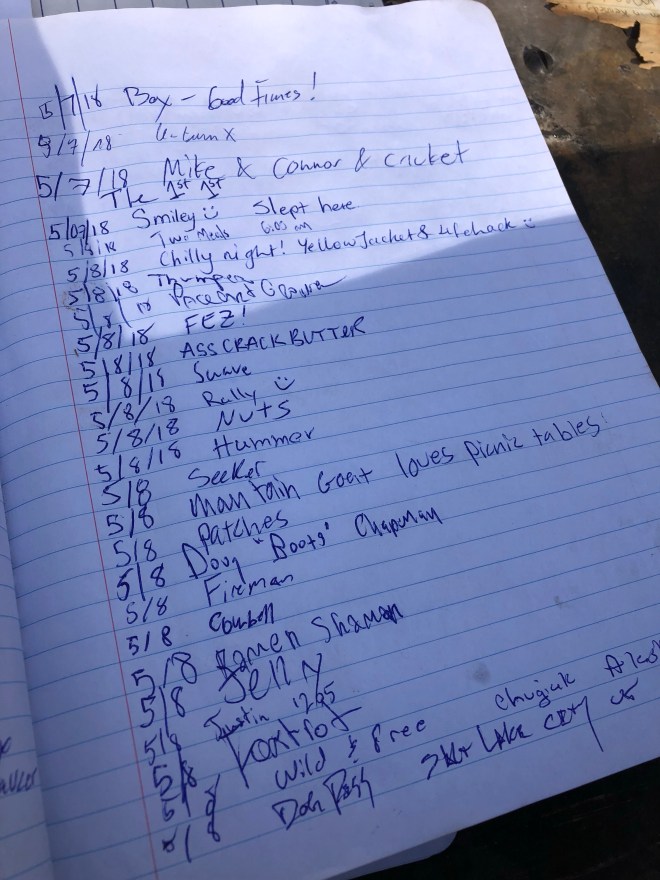 5/7/18 Box - Good Times!
5/7/18 U-turn X
5/7/18 Mike & Connor & Cricket
The 1st 1st
5/07/18 Smiley Slept here
5/8/18 Two Meals 6:05 am
5/8/18 Chilly night! YellowJacket & Lifehack
5/8/18 Thumper
5/8/18
5/8/18 FEZ!
5/8/18 ASSCRACKBUTTER
5/8/18 Suave
5/8/18 Rally
5/8/18 Nuts
5/8/18 Hummer
5/8 Seeker
5/8 Mountain Goat loves picnic tables
5/8 Patches
5/8 Doug "Boots" Chapman
5/8 Fireman
5/8 Cowbell
5/8 Ramen Shaman
5/8 Jelly
5/8 Justin 1225
5/8 Foxtrot
5/8 Wild & Free Chugiak
5/8 Salt Lake City